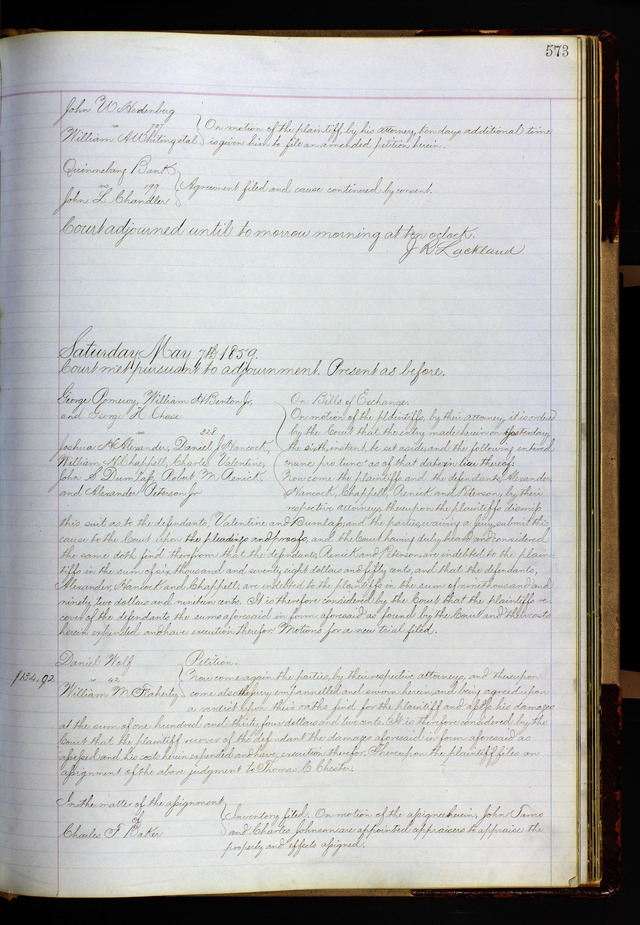 573
John W Hardenberg
William A Whiting et al } On motion of the plaintiff by his attorney, ten days additional time
is given him to file an amended petition herein.
Quinnebaug Bank
vs 199 } Agreement filed and cause continued by consent.
John L. Chandler
Court adjourned until tomorrow morning at ten oclock.
J R Lackland
Saturday May 7th 1859.
Court met pursuant to adjournment. Present as before.
George Pomeroy, William H Benton Jr.
and George K Chase
vs 228
Joshua H Alexander, Daniel J Hancock,
William N Chappell, Charles Valentine,
John S Dunlap, Robert M Renick,
and Alexander Peterson Jr
On Bills of Exchange.
On motion of the plaintiffs, by their attorney, it is ordered
by the Court that the entry made herein on yesterday
the sixth instant, be set aside, and the following entered
nunc pro tunc as of that date in lieu thereof:
Now come the plaintiffs and the defendants, Alexander,
Hancock, Chappell, Renick and Peterson, by their
respective attorneys, thereupon the plaintiffs dismiss
this suit as to the defendants, Valentine and Dunlap; and the parties waiving a jury, submit this
cause to the Court upon the pleadings and proofs, and the Court having duly heard and considered
the same doth find therefrom that the defendants, Renick and Peterson are indebted to the plain-
tiffs in the sum of six thousand and seventy eight dollars and fifty cents, and that the defendants,
Alexander, Hancock and Chappell are indebted to the plaintiffs in the sum of nine thousand and
ninety two dollars and nineteen cents. It is therefore considered by the Court that the plaintiffs re-
cover of the defendants the sums aforesaid in form aforesaid as found by the Court and their costs
herein expended and have execution therefor. Motions for a new trial filed.
Daniel Wolf
vs 42
$134.92 William M Flaherty
Petition.
Now come again the parties, by their respective attorneys, and thereupon
come also the jury empannelled and sworn herein, and being agreed upon
a verdict upon their oaths find for the plaintiff and assess his damages
at the sum of one hundred and thirty four dollars and two cents. It is therefore considered by the
Court that the plaintiff recover of the defendant the damages aforesaid in form aforesaid as
assessed and his costs herein expended and have execution therefor. Thereupon the plaintiff files an
assignment of the above judgment to Thomas C Chester.
In the matter of the assignment
of
Charles F Baker
Inventory filed. On motion of the assignee herein, John
and Charles Johnson are appointed appraisers to appraise the
property and effects assigned.